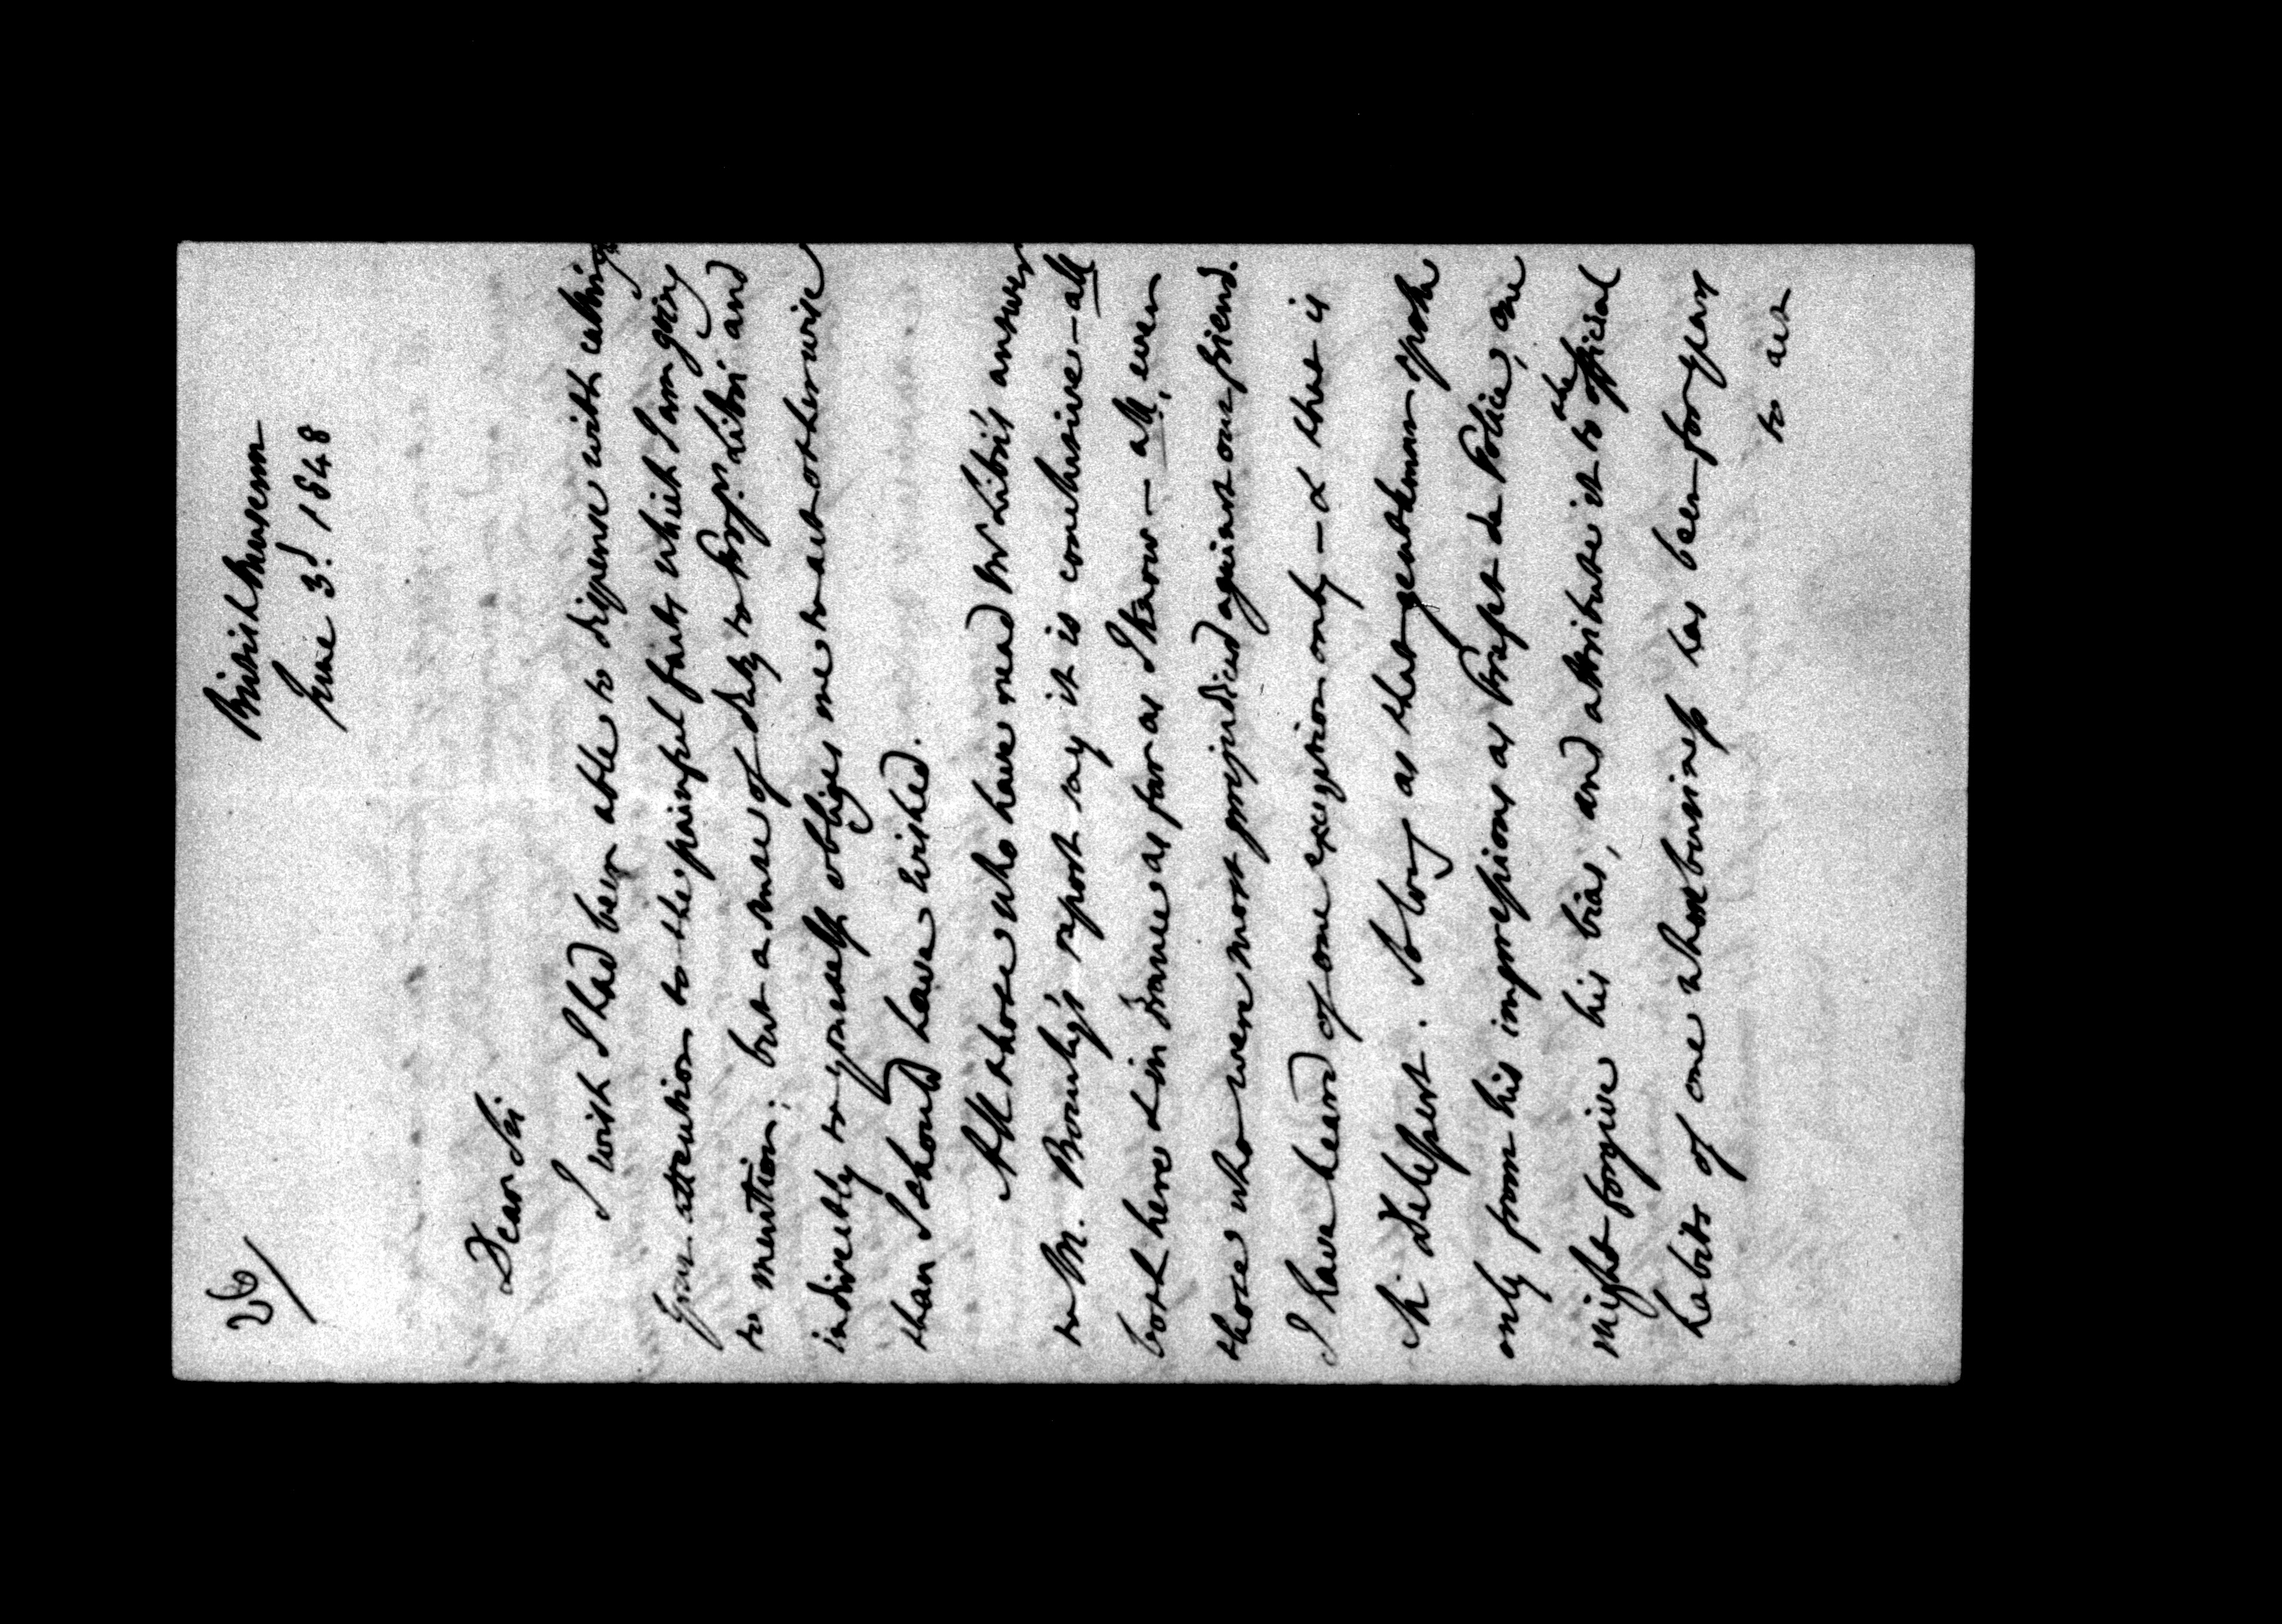 26/
British Museum
June 3d. 1848
Dear Sir
I wish I had been able to dispense with calling
your attention to the painful facts which I am going
to mention: but a sense of duty to Profr. Libri and
indirectly to yourself obliges me to act otherwise
than I should have wished.
All those who have read Mr Libri's answer
to M. Boucly's report say it is conclusive – all
both here & in France as far as I know – all, even
those who were most prejudiced against our friend.
I have heard of one exception only – & that is
M. Delessert. So long as that gentleman spoke
only from his impressions as Prefet de Police, one
might forgive his bias, and attribute it to the official
habits of one whose business has been for years
to act